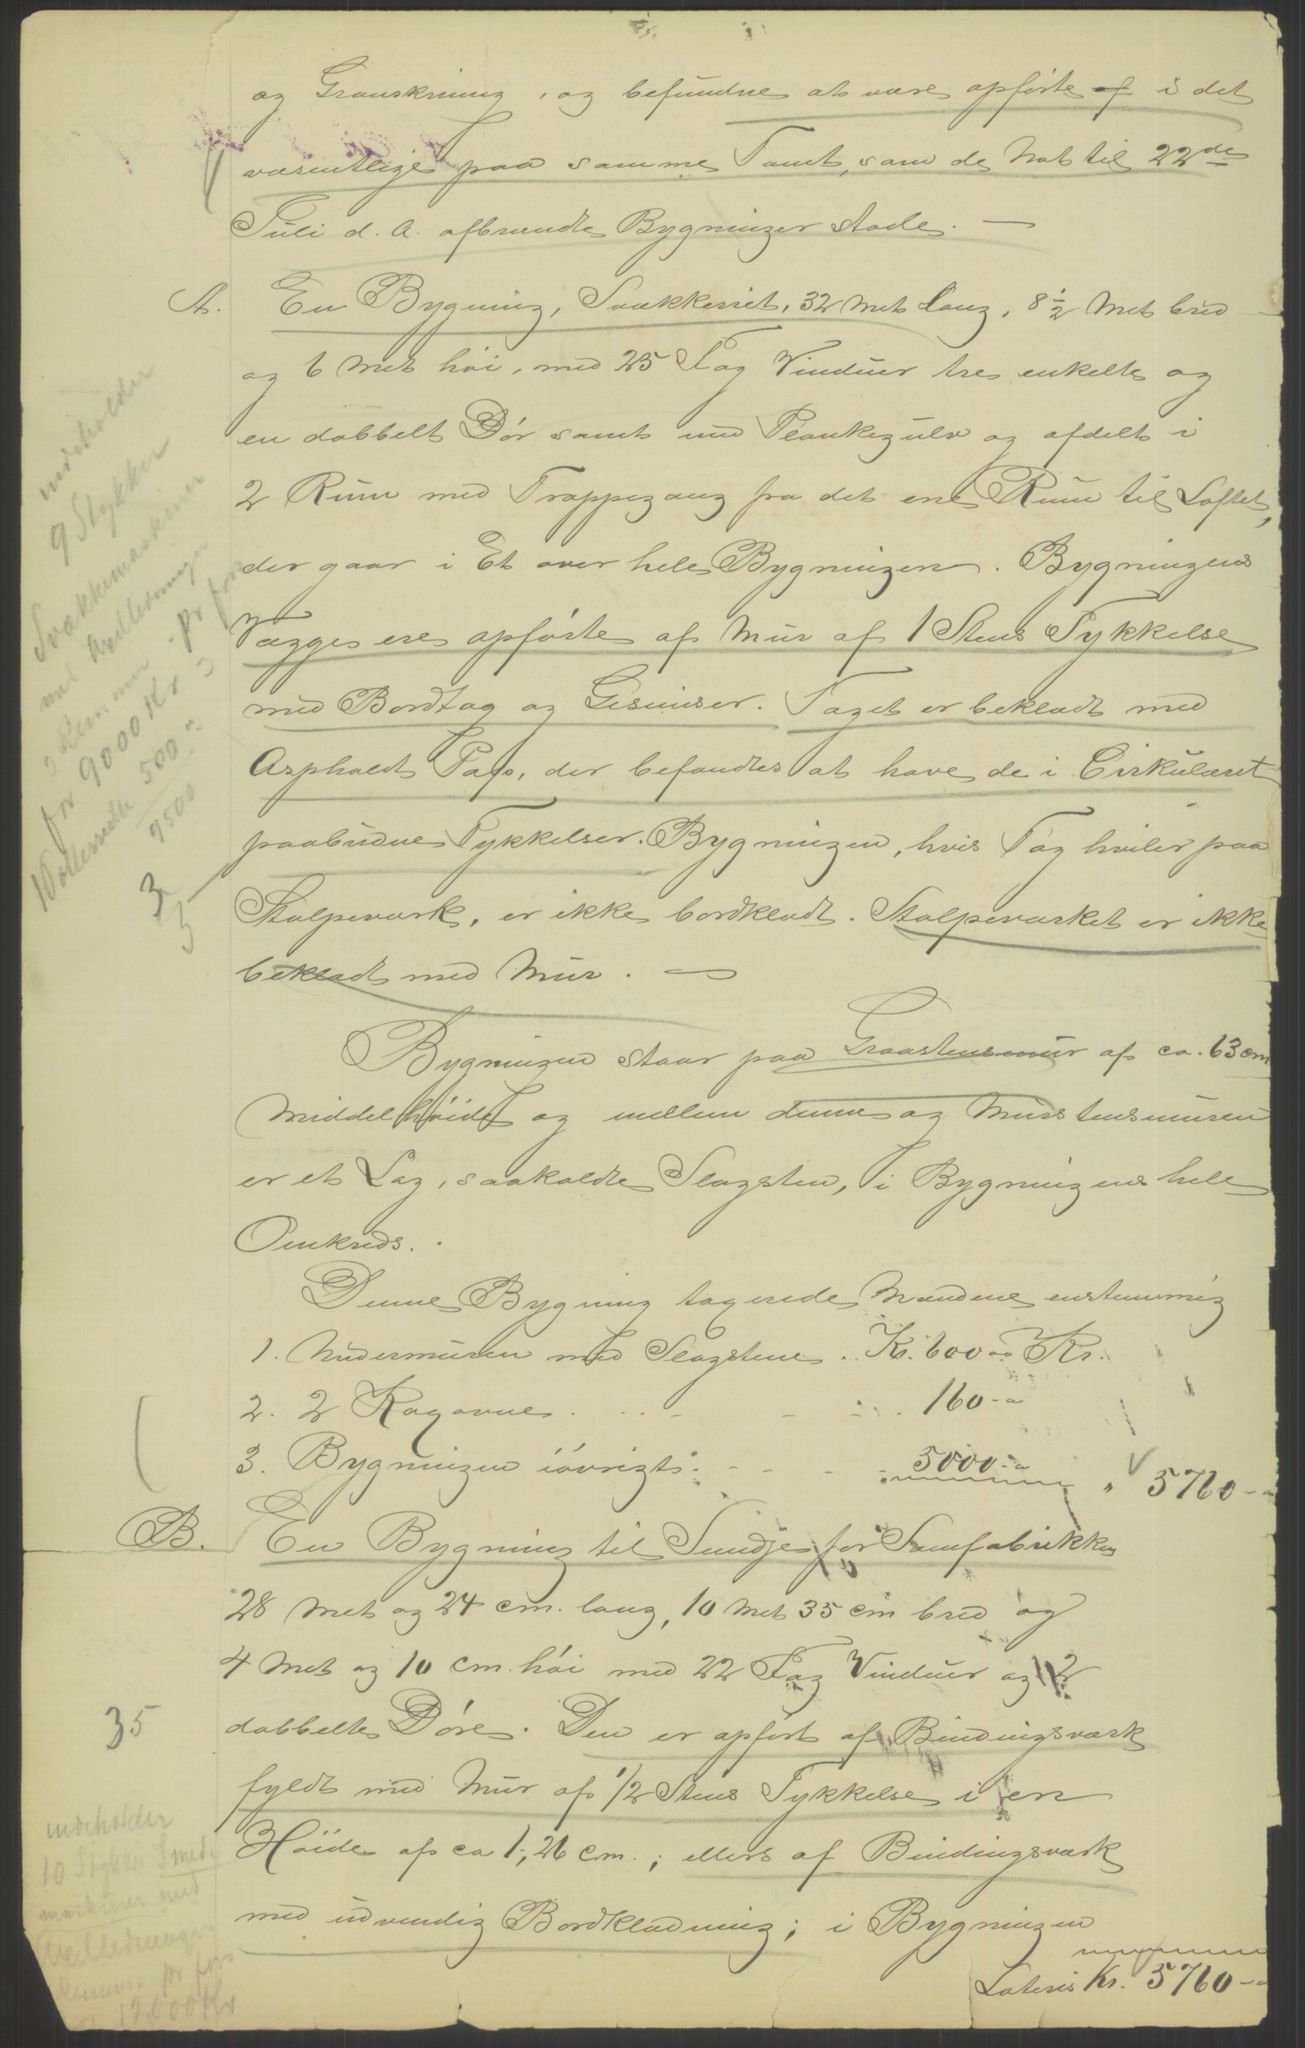 og Granskning, og befundne at være opførte af i det
væsentlige paa samme Tomt, som de Nat til 22de
Juli d. A. afbrændte Bygninger stode. —
A. En Bygning, Svakkeriet, 32 Met lang, 8½ Met bred
og 6 Met høi, med 25 Fag Vinduer tre enkelte og
en dobbelt Dør samt med Plankegulv og afdelt i
2 Rum med Trappegang fra det ene Rum til Loftet,
der gaar i Et over hele Bygningen. Bygningens
Vægge ere opførte af Mur af 1 Stens Tykkelse
med Bordtag og Gesimser. Taget er beklædt med
Asphalt Pap, der befandtes at have de i Cirkulæret
paabudne Tykkelser. Bygningen, hvis Tag hviler paa
Stolpeværk, er ikke bordklædt. Stolpeværket er ikke
beklædt med Mur. —
Bygningen staar paa Graastensmur af ca. 63 cm
Middelhøide og mellem denne og Murstensmuren
er et Lag, saakaldte Slagsten, i Bygningens hele
Omkreds.
Denne Bygning taxerede Mændene enstemmig
1. Undermuren med Slagstene. Kr. 600 Kr.
2. 2 Kogovne. 160 -
3. Bygningen iøvrigt: 5000 - " 5760 -
B. En Bygning til Smedje for Sømfabrikken
28 Met og 24 cm. lang, 10 Met 35 cm bred og
4 Met og 10 cm. høi med 22 Fag Vinduer og 2
dobbelte Døre. Den er opført af Bindingsværk
fyldt med Mur af 1/2 Stens Tykkelse i en
Høide af ca 1,26 cm.; ellers af Bindingsværk
med udvendig Bordklædning; i Bygningen
Lateris Kr. 5760 -
indeholder
9 Stykker
Svakkemaskiner
med Axelledninger
o Remmer pr fors
for 9000 Kr
500
9500
3
5
35
indeholder
10 Stykker Smede
maskiner med
Axelledninger
Remme pr fors
12000 Kr